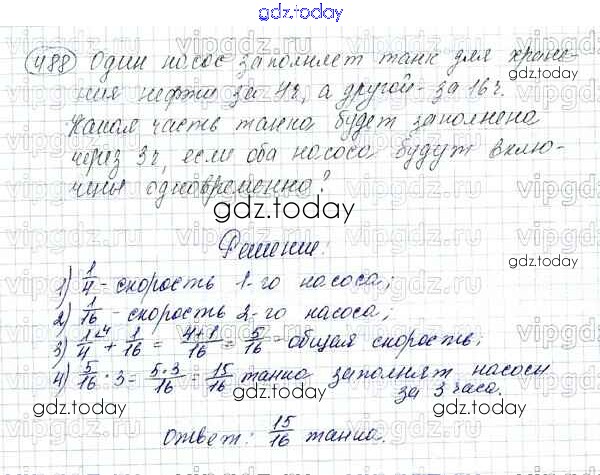 gdz.today
488 Один насос заполняет танк для хране-
ния нефти за 4ч, а другой - за 16ч.
Какая часть танка будет заполнена
через 3ч, если оба насоса будут вклю-
чены одновременно?
gdz.today
Решение:
1) 1/4 - скорость 1-го насоса;
2) 1/16 - скорость 2-го насоса;
3) 1/4 + 1/16 = 4+1/16 = 5/16 - общая скорость;
4) 5/16 · 3 = 5·3/16 = 15/16 танка заполнят насосы
за 3 часа.
gdz.today
Ответ: 15/16 танка.